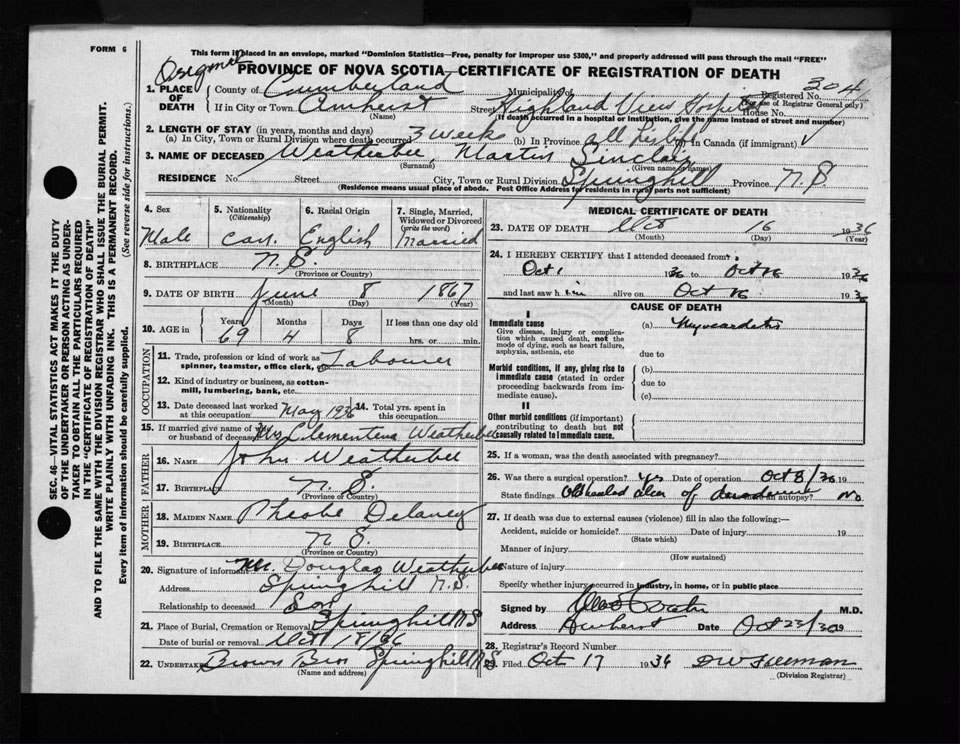 FORM 6
This form if placed in an envelope, marked "Dominion Statistics—Free, penalty for improper use $300," and properly addressed will pass through the mail "FREE"
PROVINCE OF NOVA SCOTIA—CERTIFICATE OF REGISTRATION OF DEATH
Registered No. 304
(For use of Registrar General only)
1. PLACE OF DEATH
County of Cumberland Municipality of
If in City or Town Amherst Street Highland View Hospital House No.
(Name) (If death occurred in a hospital or institution, give the name instead of street and number)
2. LENGTH OF STAY (in years, months and days)
(a) In City, Town or Rural Division where death occurred 3 weeks (b) In Province all his life In Canada (if immigrant)
3. NAME OF DECEASED Weatherbee, Martin Sinclair
(Surname) (Given name or names)
RESIDENCE No. Street City, Town or Rural Division Springhill Province N.S.
(Residence means usual place of abode. Post Office Address for residents in rural parts not sufficient)
4. Sex Male
5. Nationality (Citizenship) Can.
6. Racial Origin English
7. Single, Married, Widowed or Divorced (write the word) Married
8. BIRTHPLACE N.S.
(Province or Country)
9. DATE OF BIRTH June 8 1867
(Month) (Day) (Year)
10. AGE in Years 69 Months 4 Days 8 If less than one day old hrs. or min.
OCCUPATION
11. Trade, profession or kind of work as spinner, teamster, office clerk, Labourer
12. Kind of industry or business, as cotton-mill, lumbering, bank, etc.
13. Date deceased last worked at this occupation May 1936 14. Total yrs. spent in this occupation
15. If married give name of wife or husband of deceased Mrs Clementena Weatherbee
FATHER
16. NAME John Weatherbee
17. BIRTHPLACE N.S.
(Province or Country)
MOTHER
18. MAIDEN NAME Pheobe Delaney
19. BIRTHPLACE N.S.
(Province or Country)
20. Signature of informant Mr. Douglas Weatherbee
Address Springhill N.S.
Relationship to deceased Son
21. Place of Burial, Cremation or Removal Springhill NS
Date of burial or removal Oct 18/36
22. UNDERTAKER Brown Bros Springhill N.S
(Name and address)
MEDICAL CERTIFICATE OF DEATH
23. DATE OF DEATH Oct 16 1936
(Month) (Day) (Year)
24. I HEREBY CERTIFY that I attended deceased from:
Oct 1 1936 to Oct 16 1936
and last saw him alive on Oct 16 1936
CAUSE OF DEATH
I
Immediate cause (a) Myocarditis
Give disease, injury or complication which caused death, not the mode of dying, such as heart failure, asphyxia, asthenia, etc
due to
Morbid conditions, if any, giving rise to immediate cause (stated in order proceeding backwards from immediate cause). (b)
due to
(c)
II
Other morbid conditions (if important) contributing to death but not causally related to immediate cause.
25. If a woman, was the death associated with pregnancy?
26. Was there a surgical operation? Yes Date of operation Oct 8/36 19
State findings Old healed ulcer of duodenum autopsy? No
27. If death was due to external causes (violence) fill in also the following:—
Accident, suicide or homicide? Date of injury 19
(State which)
Manner of injury
(How sustained)
Nature of injury
Specify whether injury occurred in industry, in home, or in public place
Signed by M.D.
Address Amherst Date Oct 23/36 19
28. Registrar's Record Number
29. Filed Oct 17 1936 DW Freeman
(Division Registrar)
SEC. 46—VITAL STATISTICS ACT MAKES IT THE DUTY
OF THE UNDERTAKER OR PERSON ACTING AS UNDER-
TAKER TO OBTAIN ALL THE PARTICULARS REQUIRED
IN THE "CERTIFICATE OF REGISTRATION OF DEATH"
AND TO FILE THE SAME WITH THE DIVISION REGISTRAR WHO SHALL ISSUE THE BURIAL PERMIT.
WRITE PLAINLY WITH UNFADING INK. THIS IS A PERMANENT RECORD.
Every item of information should be carefully supplied. (See reverse side for instructions.)